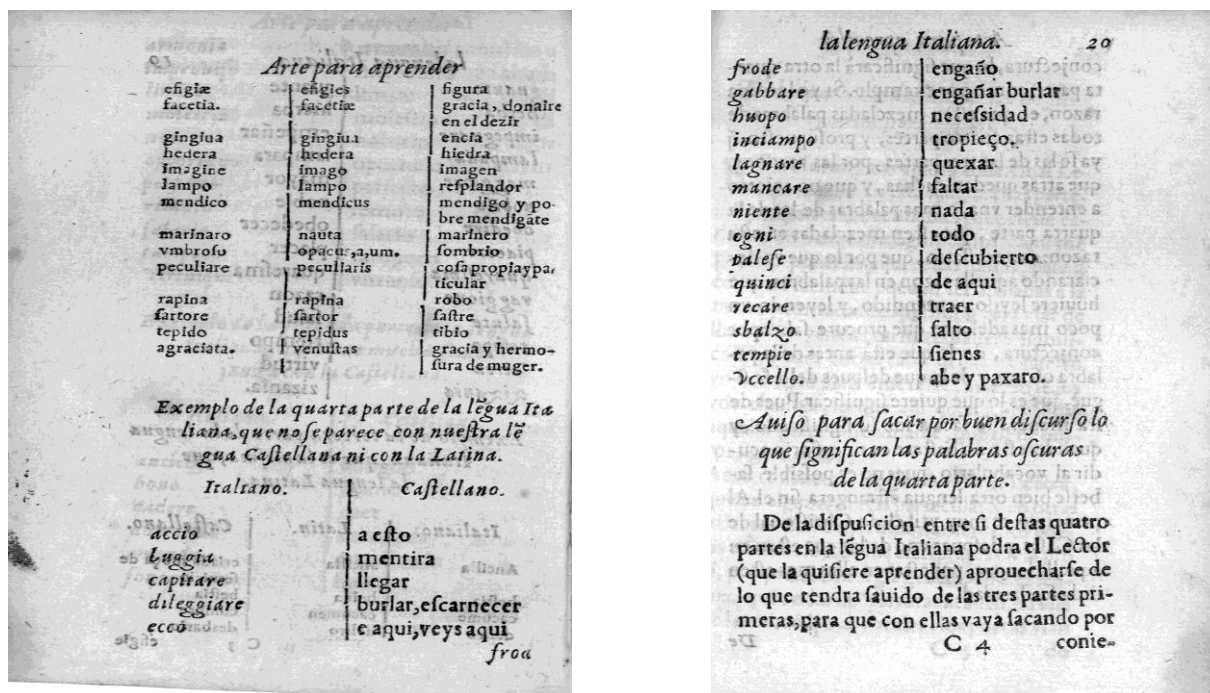 Arte para aprender
efigiæ efigies figura
facetia. facetiæ gracia, donaire
en el dezir
gingiua gingiua encia
hedera hedera hiedra
imagine imago imagen
lampo lampo reſplandor
mendico mendicus mendigo y po-
bre mendigãte
marinaro nauta marinero
vmbroſo opacus,a,um. ſombrio
peculiare peculiaris coſa propia y par
ticular
rapina rapina robo
ſartore ſartor ſaſtre
tepido tepidus tibio
agraciata. venuſtas gracia y hermo-
ſura de muger.
Exemplo de la quarta parte de la lẽgua Ita
liana, que no ſe parece con nueſtra lẽ
gua Caſtellana ni con la Latina.
Italiano. Caſtellano.
accio a eſto
Luggia mentira
capitare llegar
dileggiare burlar, eſcarnecer
ecco e aqui, veys aqui
froa
la lengua Italiana. 20
frode engaño
gabbare engañar burlar
huopo neceſsidad
inciampo tropieço.
lagnare quexar
mancare faltar
niente nada
ogni todo
paleſe deſcubierto
quinci de aqui
recare traer
sbalzo. ſalto
tempie ſienes
Vccello. abe y paxaro.
Auiſo para ſacar por buen diſcurſo lo
que ſignifican las palabras oſcuras
de la quarta parte.
De la diſpuſicion entre ſi deſtas quatro
partes en la lẽgua Italiana podra el Lector
(que la quiſiere aprender) aprouecharſe de
lo que tendra ſauido de las tres partes pri-
meras, para que con ellas vaya ſacando por
C 4 conie-